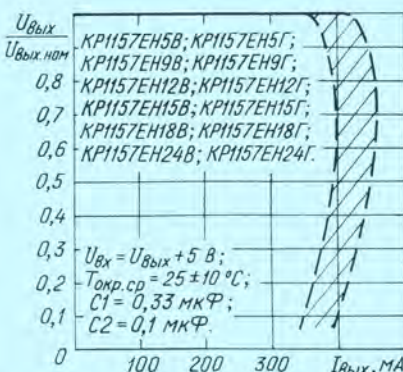 Uвых
Uвых.ном
КР1157ЕН5В; КР1157ЕН5Г;
КР1157ЕН9В; КР1157ЕН9Г;
КР1157ЕН12В; КР1157ЕН12Г;
КР1157ЕН15В; КР1157ЕН15Г;
КР1157ЕН18В; КР1157ЕН18Г;
КР1157ЕН24В; КР1157ЕН24Г.
0,8
0,7
0,6
0,5
0,4
0,3
0,2
0,1
0
Uвх = Uвых + 5 В;
Tокр.ср = 25 ± 10 °С;
С1 = 0,33 мкФ;
С2 = 0,1 мкФ.
100 200 300 Iвых, мА